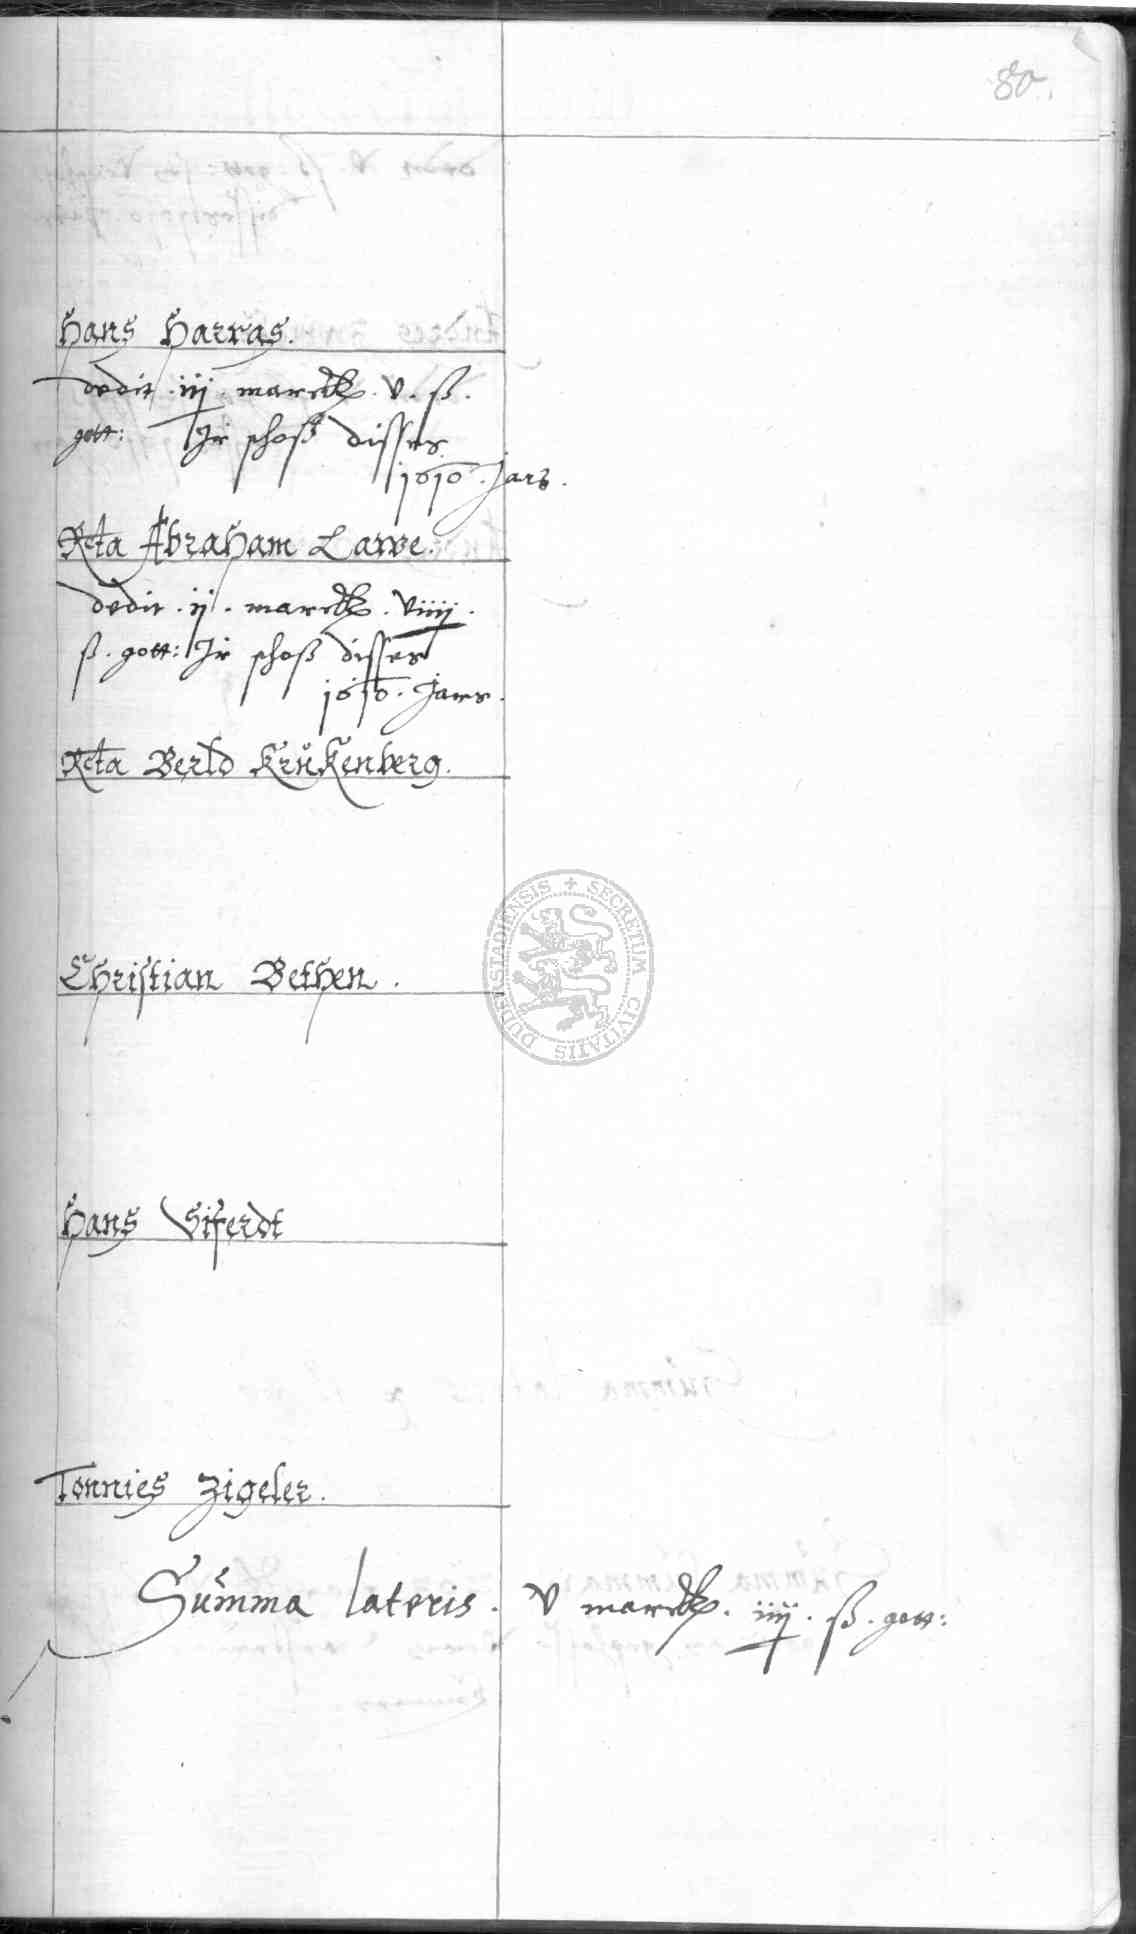 80.
Hans Harras.
dedit . iij . marck . v . ß .
gott: Jr schoß disses
1610 . Jars .
Rcta Abraham Lawe.
dedit . ij . marck . viiij .
ß . gott: Jr schoß disses
1610 . Jars .
Rcta Bertd Krükenberg.
Christian Bethen .
Hans Siferdt
Tonnies Zigeler.
Summa lateris . v marck . iiij . ß . gott:
SECRETUM CIVITATIS DUDERSTADIENSIS